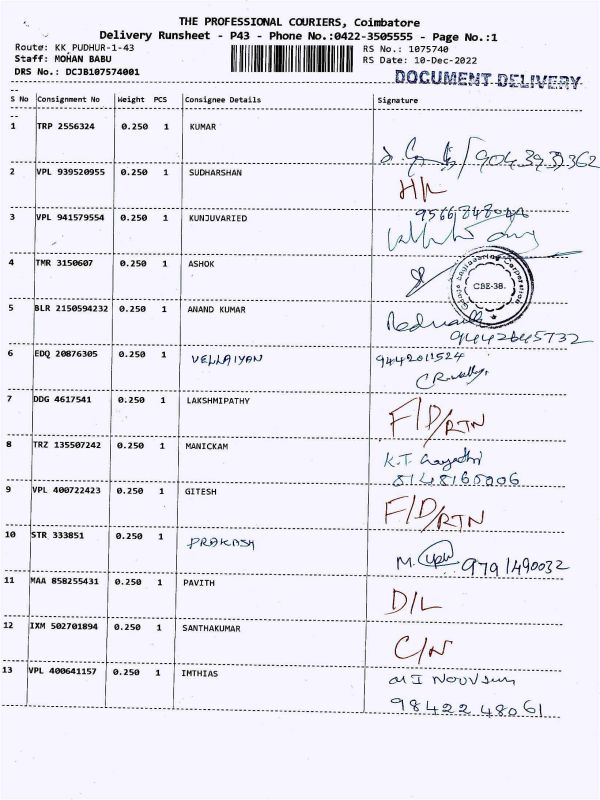 THE PROFESSIONAL COURIERS, Coimbatore
Delivery Runsheet - P43 - Phone No.:0422-3505555 - Page No.:1
Route: KK PUDHUR-1-43 RS No.: 1075740
Staff: MOHAN BABU RS Date: 10-Dec-2022
DRS No.: DCJB107574001
DOCUMENT DELIVERY
S No Consignment No Weight PCS Consignee Details Signature
1 TRP 2556324 0.250 1 KUMAR
2 VPL 939520955 0.250 1 SUDHARSHAN
3 VPL 941579554 0.250 1 KUNJUVARIED
4 TMR 3150607 0.250 1 ASHOK
CBE-38.
5 BLR 2150594232 0.250 1 ANAND KUMAR
9442645732
6 EDQ 20876305 0.250 1 VELLAIYAN 9442011524
7 DDG 4617541 0.250 1 LAKSHMIPATHY F/D/RTN
8 TRZ 135507242 0.250 1 MANICKAM K.T. Gayathri
8148165006
9 VPL 400722423 0.250 1 GITESH F/D/RTN
10 STR 333851 0.250 1 PRAKASH M. 9791490032
11 MAA 858255431 0.250 1 PAVITH D/L
12 IXM 502701894 0.250 1 SANTHAKUMAR C/N
13 VPL 400641157 0.250 1 IMTHIAS
98422 48061